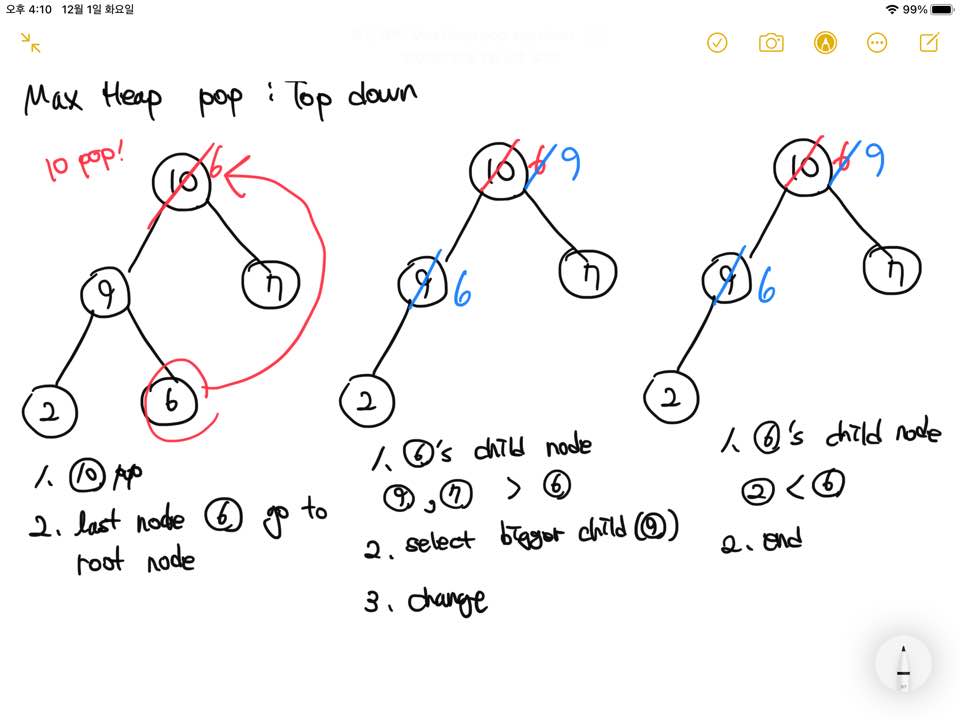 오후 4:10 12월 1일 화요일
99%
Max Heap pop : Top down
10 pop!
10 6
9 7
2 6
10 6 9
9 6 7
2
10 6 9
9 6 7
2
1. 10 pop
2. last node 6 go to
root node
1. 6's child node
9, 7 > 6
2. select bigger child (9)
3. change
1. 6's child node
2 < 6
2. end